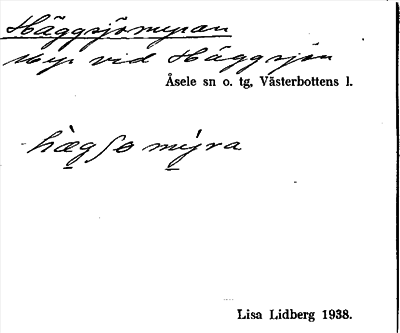 Häggsjömyran
Myr vid Häggsjön
Åsele sn o. tg, Västerbottens l.
hæ̀gʃo mýra
Lisa Lidberg 1938.